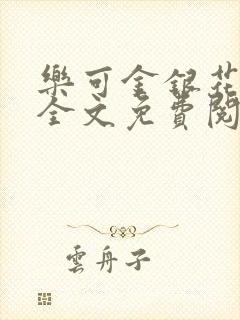 樂可金銀花
全文免費閱
雲舟子